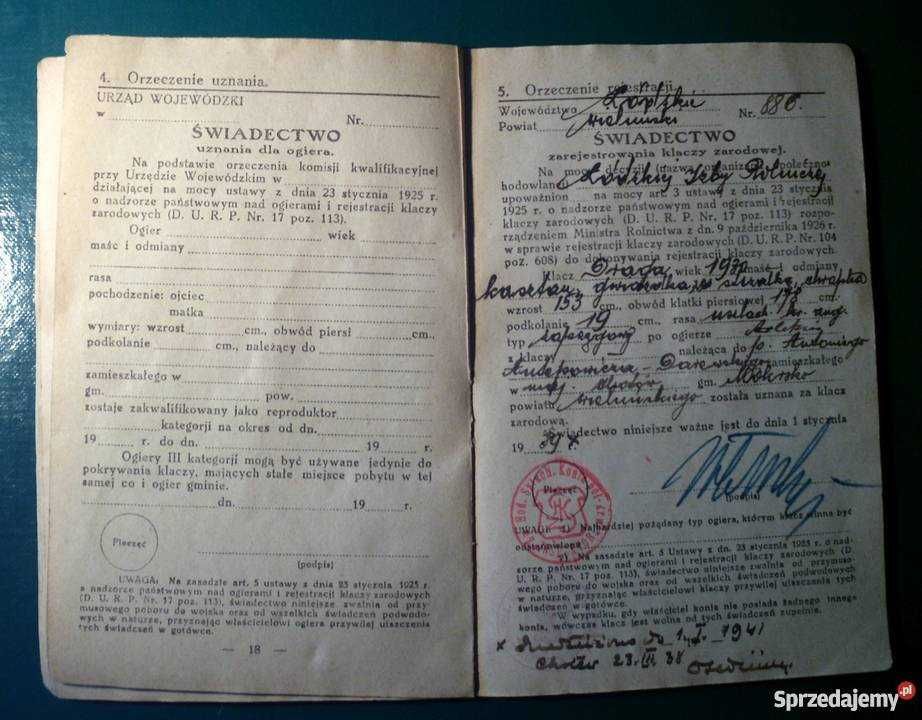 4. Orzeczenie uznania.
URZĄD WOJEWÓDZKI
w Nr.
ŚWIADECTWO
uznania dla ogiera.
Na podstawie orzeczenia komisji kwalifikacyjnej
przy Urzędzie Wojewódzkim w
działającej na mocy ustawy z dnia 23 stycznia 1925 r.
o nadzorze państwowym nad ogierami i rejestracji klaczy
zarodowych (D. U. R. P. Nr. 17 poz. 113).
Ogier wiek
maść i odmiany
rasa
pochodzenie: ojciec
matka
wymiary: wzrost cm., obwód piersi cm.,
podkolanie cm., należący do
zamieszkałego w
gm. pow.
zostaje zakwalifikowany jako reproduktor
kategorji na okres od dn.
19 r. do dn. 19 r.
Ogiery III kategorji mogą być używane jedynie do
pokrywania klaczy, mających stałe miejsce pobytu w tej
samej co i ogier gminie.
dn. 19 r.
Pieczęć
(podpis)
UWAGA: Na zasadzie art. 5 ustawy z dnia 23 stycznia 1925 r.
o nadzorze państwowym nad ogierami i rejestracji klaczy zarodowych
(D. U. R. P. Nr. 17 poz. 113), świadectwo niniejsze zwalnia od przy-
musowego poboru do wojska oraz od wszelkich świadczeń podwodo-
wych w naturze, przyznając właścicielowi ogiera przywilej uiszczenia
tych świadczeń w gotówce.
— 18 —
5. Orzeczenie rejestracji.
Województwo Łódzkie Nr. 886.
Powiat wieluński
ŚWIADECTWO
zarejestrowania klaczy zarodowej.
Na mocy decyzji (nazwa organizacji społeczno-
hodowlanej) Łódzkiej Izby Rolniczej
upoważnion na mocy art. 3 ustawy z dnia 23 stycznia
1925 r. o nadzorze państwowym nad ogierami i rejestracji
klaczy zarodowych (D. U. R. P. Nr. 17 poz. 113) rozpo-
rządzeniem Ministra Rolnictwa z dn. 9 października 1926 r.
w sprawie rejestracji klaczy zarodowych (D. U. R. P. Nr. 104
poz. 608) do dokonywania rejestracji klaczy zarodowych.
Klacz Draga wiek maść i odmiany
kasztan, gwiazdka, strzałka, chrapka
wzrost 153 cm., obwód klatki piersiowej 175 cm.
podkolanie 19 cm. rasa uszlach.
typ zaprzęgowy po ogierze
z klaczy należąca do p. Antoniego
zamieszkałego
w maj. gm. Mokrsko
powiatu wieluńskiego została uznana za klacz
zarodową.
Świadectwo niniejsze ważne jest do dnia 1 stycznia
19 39 r.
Pieczęć
(podpis)
UWAGA 1) Najbardziej pożądany typ ogiera, którym klacz winna być
odstanowiona
2) Na zasadzie art. 5 Ustawy z dn. 23 stycznia 1925 r. o nad-
zorze państwowym nad ogierami i rejestracji klaczy zarodowych (D.
U. R. P. Nr. 17 poz. 113), świadectwo niniejsze zwalnia od przymuso-
wego poboru do wojska oraz od wszelkich świadczeń podwodowych
w naturze, przyznając właścicielowi klaczy przywilej uiszczania tych
świadczeń w gotówce.
W wypadku, gdy właściciel konia nie posiada żadnego innego
konia, wówczas klacz jest wolna od tych świadczeń zupełnie.
x do 1. I. 1941
23. III 38
Sprzedajemy.pl